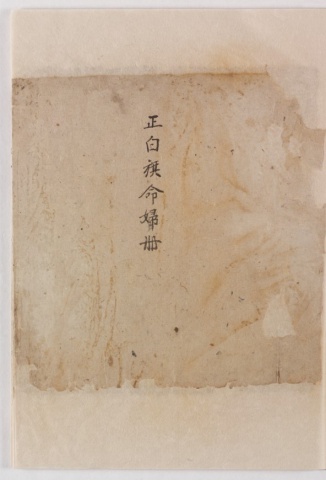 正白旗命婦册